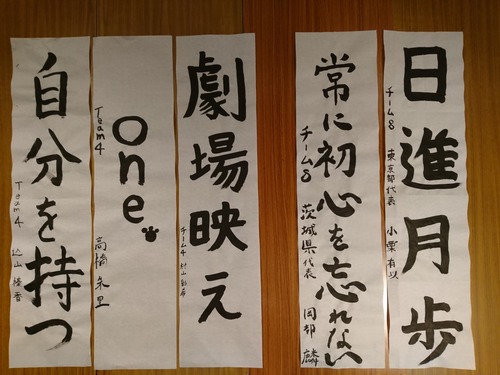 日進月歩
チーム8 東京都代表 小栗有以
常に初心を忘れない
チーム8 茨城県代表 岡部 麟
劇場映え
チーム4 村山彩希
one.
Team4 高橋朱里
自分を持つ
Team4 込山榛香